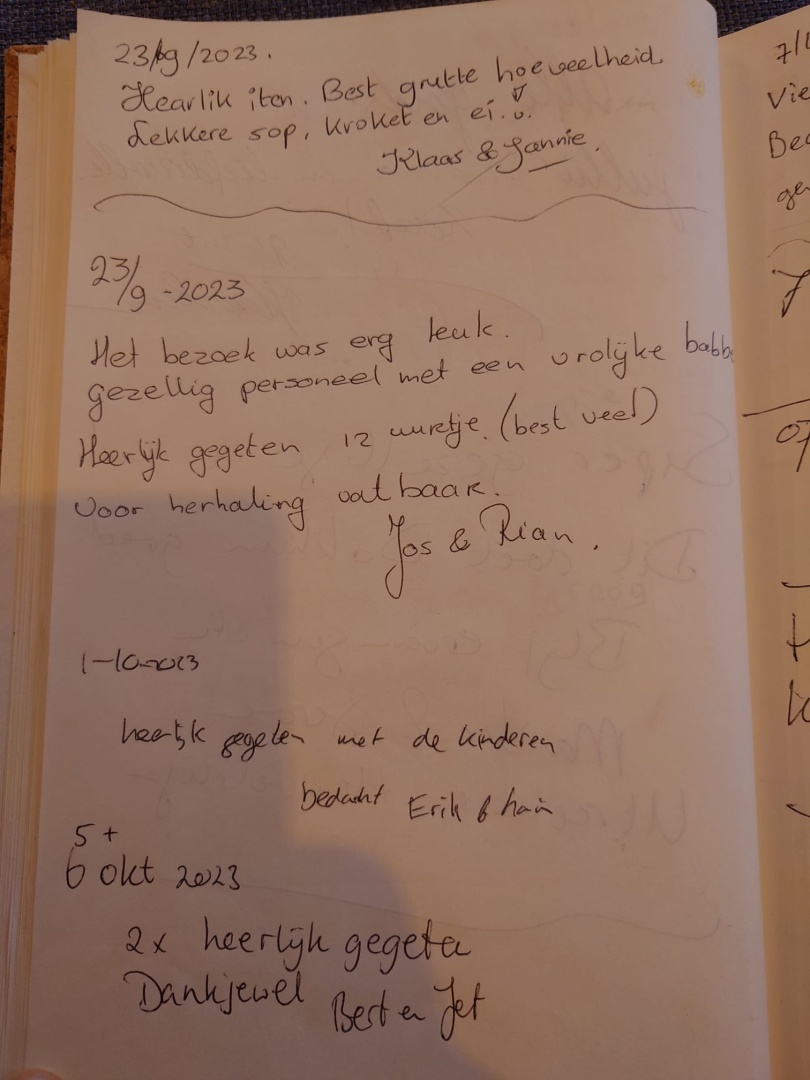 23/9/2023.
Hearlik iten. Best grutte hoeveelheid
Lekkere sop, kroket en ei.
Klaas & Jannie.
23/9 - 2023
Het bezoek was erg leuk.
gezellig personeel met een vrolijke babb
Heerlijk gegeten 12 uuretje. (best veel)
Voor herhaling vatbaar.
Jos & Rian.
1-10-2023
heerlijk gegeten met de kinderen
bedankt Erik &
5+
6 okt 2023
2x heerlijk gegeten
Dankjewel
Bert en Jet
7/1
Vie
Bec
ge
7
07